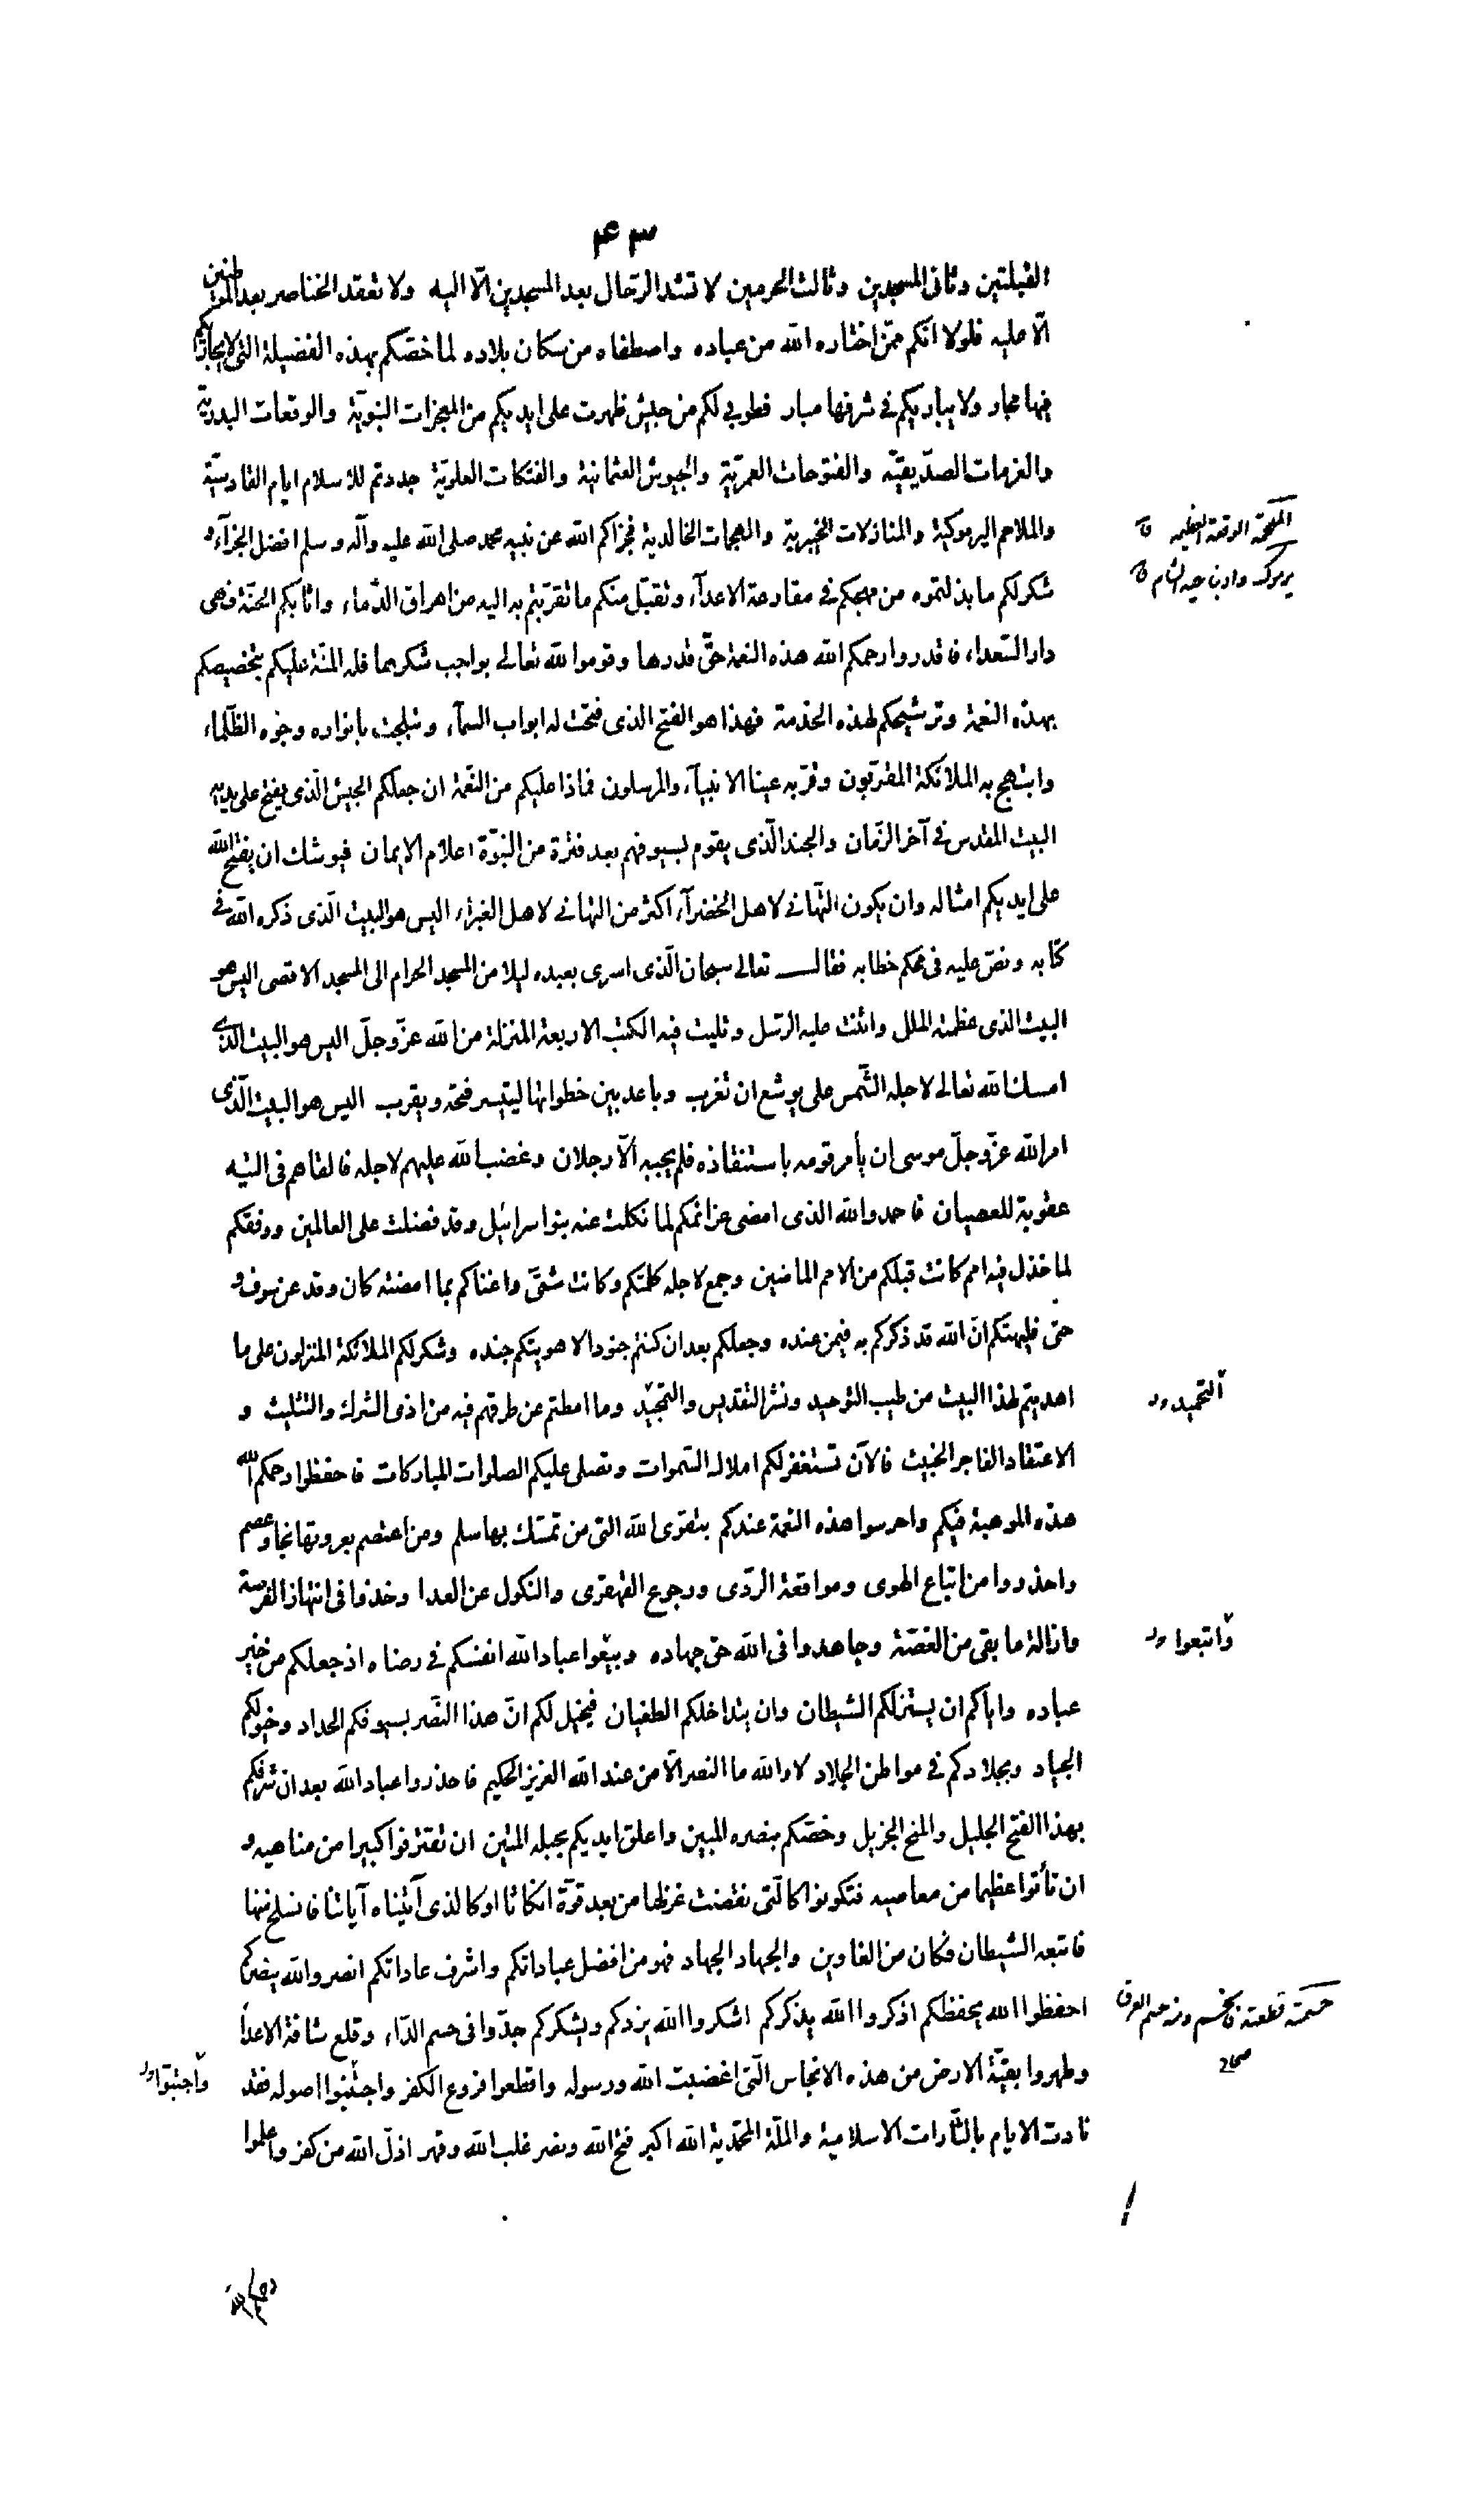 ٤٣
القبلتين وثانى المسجدين وثالث الحرمين لا تشد الرّحال بعد المسجدين الّا اليه ولا تعقد الخناصر بعد الموطنين
الّا عليه فلولا انّكم ممّن اختاره الله من عباده واصطفاه من سكان بلاده لما خصّكم بهذه الفضيلة التى لا يجاريكم
فيها مجار ولا يباريكم فى شرفها مبار فطوبى لكم من جيش ظهرت على ايديكم من المعجزات النبويّة والوقعات البدريّة
والعزمات الصدّيقيّه والفتوحات العمريّة والجيوش العثمانية والفتكات العلويّة جددتم للاسلام ايام القادسيّة
والملاحم اليرموكية والمنازلات الخيبرية والهجمات الخالدية فجزاكم الله عن نبيه محمد صلى الله عليه وآله وسلم افضل الجزآء و
شكر لكم ما بذلتموه من مهجكم فى مقارعة الاعدآء وتقبّل منكم ما تقرّبتم به اليه من اهراق الدّماء واثابكم الجنّة فهى
دار السّعداء فاقدروا رحمكم الله هذه النعمة حقّ قدرها وقوموا لله تعالى بواجب شكرها فله المنّة عليكم بتخصيصكم
بهذه النعمة وترشيحكم لهذه الخدمة فهذا هو الفتح الذى فتحت له ابواب السمآء وتبلجت بانواره وجوه الظّلماء
وابتهج به الملائكة المقرّبون وقرّ به عينا الانبيآء والمرسلون فماذا عليكم من النّعمة ان جعلكم الجيش الّذى يفتح على يديه
البيت المقدس فى آخر الزّمان والجند الّذى يقوم بسيوفهم بعد فترة من النبوّة اعلام الايمان فيوشك ان يفتح الله
على ايديكم امثاله وان يكون التّهانى لاهل الخضرآء اكثر من التهانى لاهل الغبراء اليس هو البيت الّذى ذكره الله فى
كتابه ونصّ عليه فى محكم خطابه فقال تعالى سبحان الّذى اسرى بعبده ليلا من المسجد الحرام الى المسجد الاقصى اليس هو
البيت الذى عظمته الملل واثنت عليه الرّسل وتليت فيه الكتب الاربعة المنزلة من الله عزّ وجلّ اليس هو البيت الذى
امسك الله تعالى لاجله الشّمس على يوشع ان تغرب وباعد بين خطواتها ليتيسر فتحه ويقرب اليس هو البيت الّذى
امر الله عزّ وجلّ موسى ان يأمر قومه باستنقاذه فلم يجبه الّا رجلان وغضب الله عليهم لاجله فالقاهم فى التيه
عقوبة للعصيان فاحمدوا الله الذى امضى عزائمكم لما نكلت عنه بنو اسرائيل وقد فضلت على العالمين ووفقكم
لما خذل فيه امم كانت قبلكم من الامم الماضين وجمع لاجله كلمتكم وكانت شتّى واغناكم بما امضته كان وقد عن سوف و
حتى فليهنكم انّ الله قد ذكركم به فيمن عنده وجعلكم بعد ان كنتم جنودا لاهويتكم جنده وشكر لكم الملائكة المنزلون على ما
اهديتم لهذا البيت من طيب التوحيد ونشر التقديس والتمجيد وما امطتم عن طرقهم فيه من اذى الشرك والتثليث و
الاعتقاد الفاجر الخبيث فالآن تستغفر لكم املاك السّموات وتصلى عليكم الصلوات المباركات فاحفظوا رحمكم الله
هذه الموهبة فيكم واحرسوا هذه النعمة عندكم بتقوى الله التى من تمسّك بها سلم ومن اعتصم بعروتها نجا وعصم
واحذروا من اتباع الهوى وموافقة الرّدى ورجوع القهقرى والنكول عن العدا وخذوا فى انتهاز الفرصة
وازالة ما بقى من الغصّة وجاهدوا فى الله حق جهاده وبيعوا عباد الله انفسكم فى رضاه اذ جعلكم من خير
عباده واياكم ان يستزلكم الشيطان وان يتداخلكم الطغيان فيخيل لكم انّ هذا النّصر بسيوفكم الحداد وخيولكم
الجياد وبجلادكم فى مواطن الجلاد لا والله ما النصر الّا من عند الله العزيز الحكيم فاحذروا عباد الله بعد ان شرّفكم
بهذا الفتح الجليل والمنح الجزيل وخصّكم بنصره المبين واعلق ايديكم بحبله المتين ان تقترفوا كبيرا من مناهيه و
ان تأتوا عظيما من معاصيه فتكونوا كالّتى نقضت غزلها من بعد قوّة انكاثا او كالذى آتيناه آياتنا فانسلخ منها
فاتبعه الشيطان فكان من الغاوين والجهاد الجهاد فهو من افضل عباداتكم واشرف عاداتكم انصروا الله ينصركم
احفظوا الله يحفظكم اذكروا الله يذكركم اشكروا الله يزدكم ويشكركم جدّوا فى حسم الدّاء وقلع شافة الاعداء
وطهروا بقيّة الارض من هذه الانجاس الّتى اغضبت الله ورسوله واقطعوا فروع الكفر واجتثّوا اصوله فقد
نادت الايام بالثّارات الاسلامية والملّة المحمّدية الله اكبر فتح الله ونصر غلب الله وقهر اذلّ الله من كفر واعلموا
الملحمة الوقعة العظيمة ق
يرموك واد بناحية الشام ق
التحميد
واتبعوا
حسمه قطعه فانحسم ومنه حسم العرق
صحاح
واجتثوا
رحمكم الله